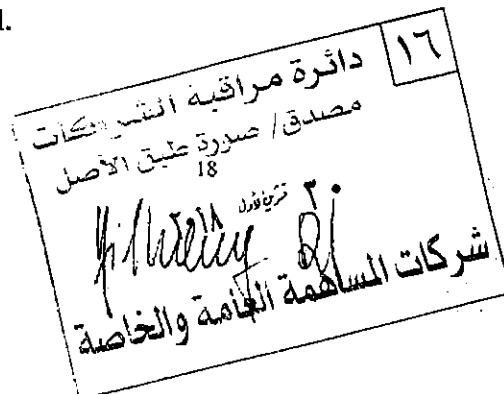 l.
١٦
دائرة مراقبة الشركات
مصدق / صورة طبق الأصل
18
٣٠ تشرين أول ٢٠١٨
شركات المساهمة العامة والخاصة